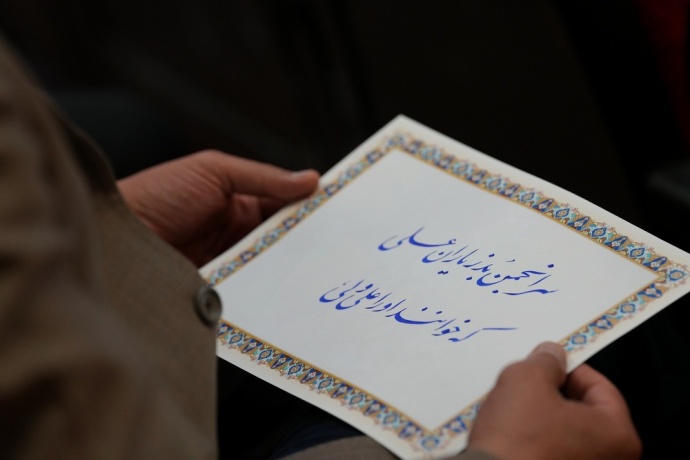 سر انجمن بُذ ز یاران علی
که خوانند او را علی ولی